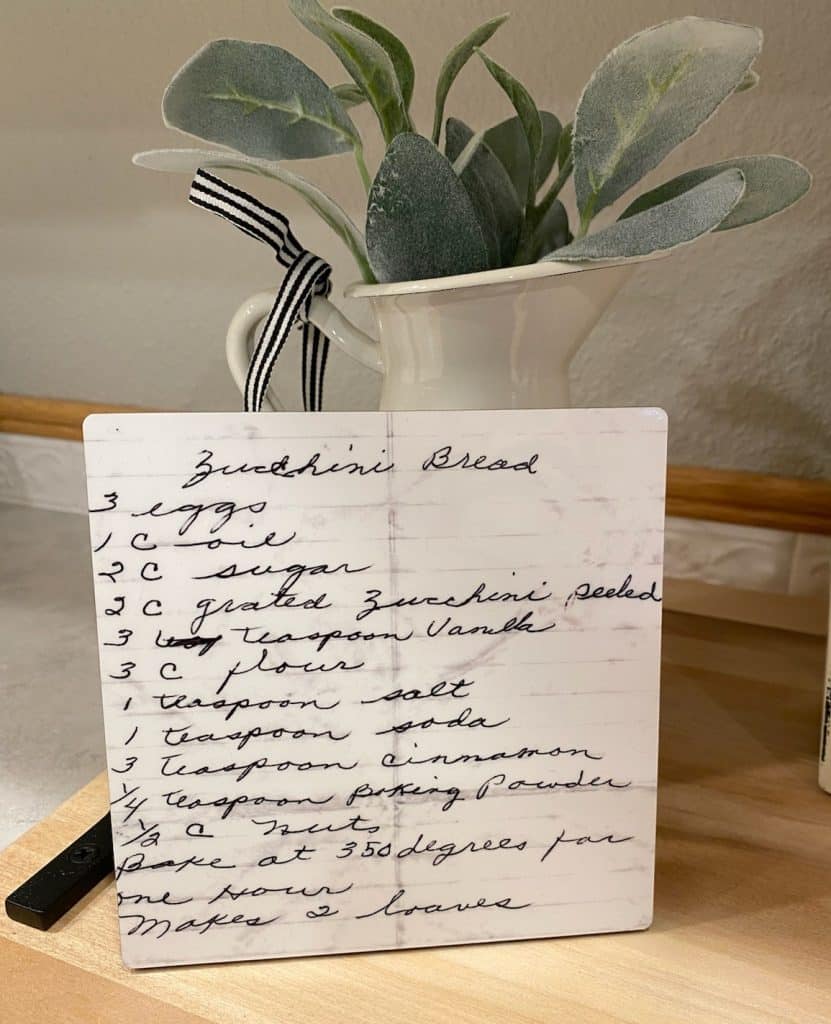 Zucchini Bread
3 eggs
1 C oil
2 C sugar
2 C grated Zucchini peeled
3 Teaspoon Vanilla
3 C flour
1 teaspoon salt
1 teaspoon soda
3 Teaspoon cinnamon
1/4 teaspoon Baking Powder
1/2 C nuts
Bake at 350 degrees for
one Hour
Makes 2 loaves